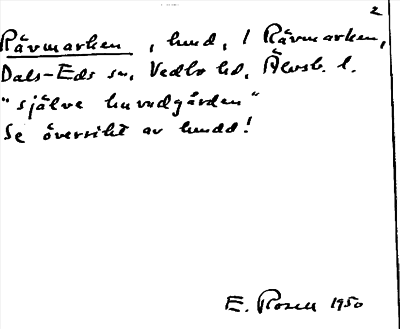 2
Rävmarken, hmd, i Rävmarken,
Dals-Eds sn, Vedbo hd, Älvsb. l.
"själve huvudgården"
Se översikt av hmdd!
E. Rosell 1950